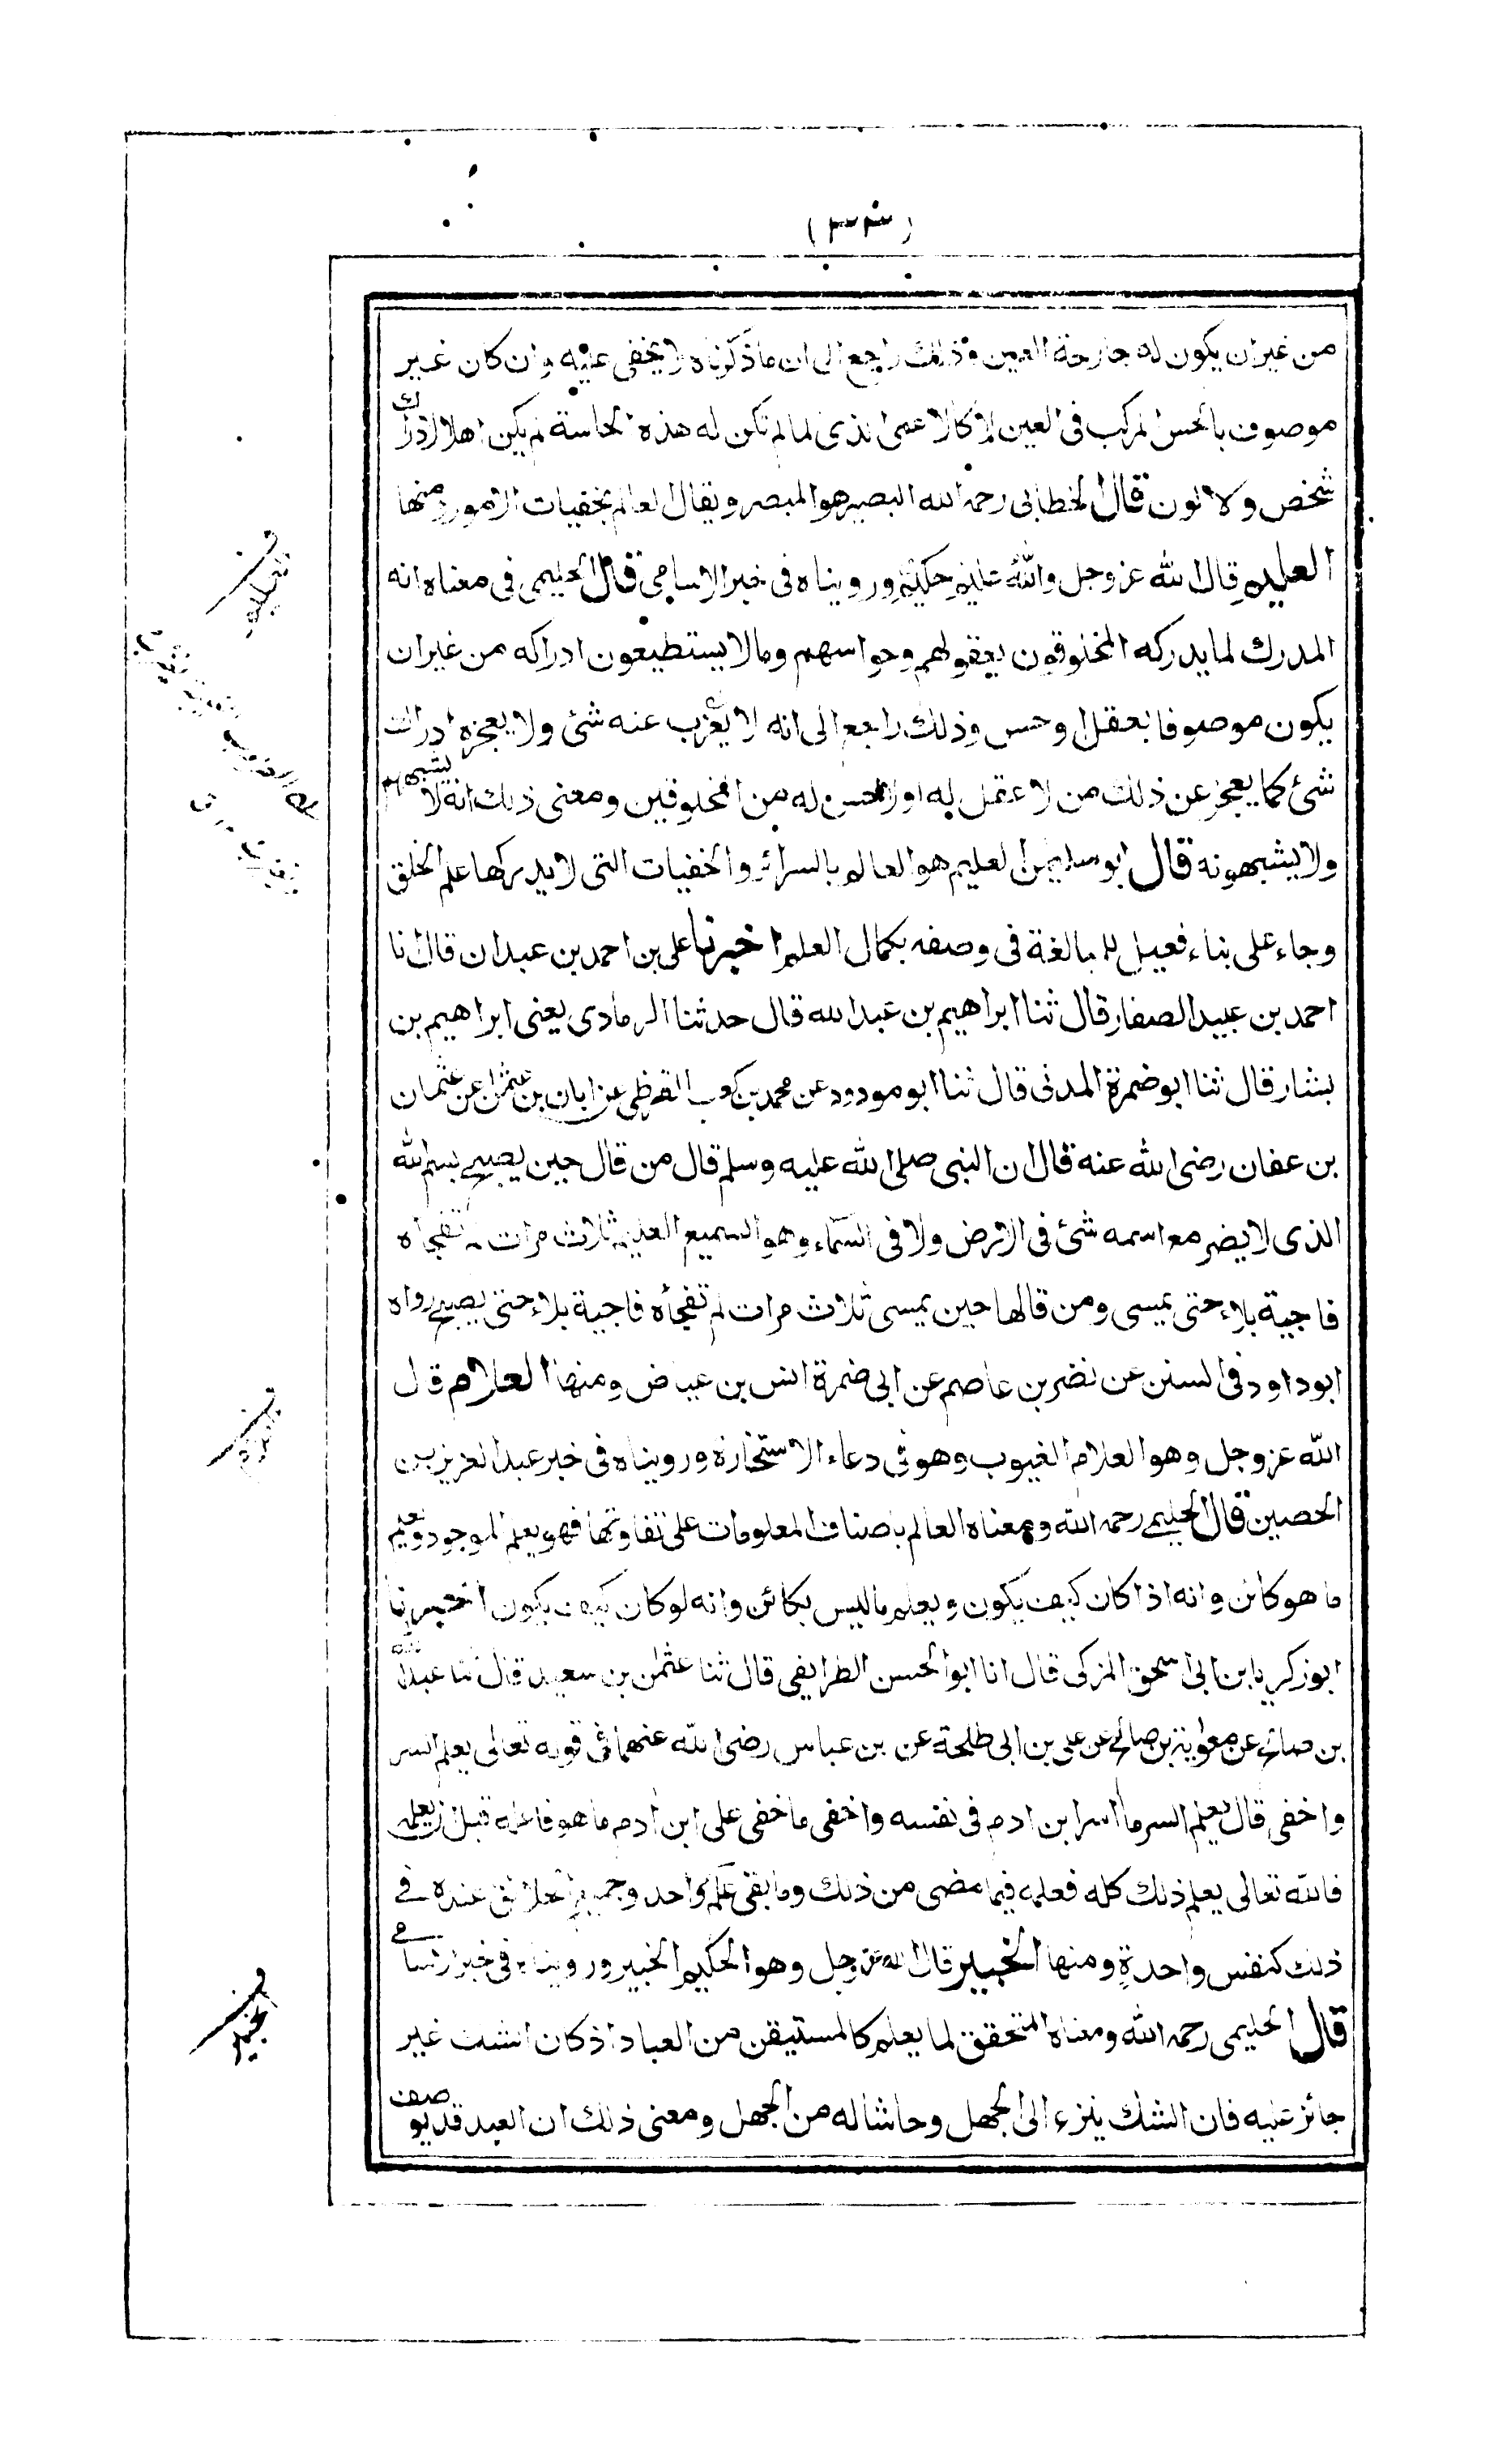 (٣٣)
من غيران يكون له جارحة العين وذلك راجع الى ان ماذكرناه لا يخفى عليه وان كان غير
موصوف بالحس المركب فى العين لا كالاعمى الذى لما لم تكن له هذه الحاسة لم يكن اهلا لادراك
شخص ولا لون قال الخطابى رحمه الله البصير هو المبصر ويقال العالم بخفيات الامور ومنها
العليم قال الله عز وجل والله عليم حكيم ورويناه فى خبر الاسامى قال الحليمى فى معناه انه
المدرك لما يدركه المخلوقون بعقولهم وحواسهم ومالا يستطيعون ادراكه من غيران
يكون موصوفا بعقل او حس وذلك راجع الى انه لا يعزب عنه شئ ولا يعجزه ادراك
شئ كما يعجز عن ذلك من لا عقل له اولا حس له من المخلوقين ومعنى ذلك انه لا يشبههم
ولا يشبهونه قال ابو سليمن العليم هو العالم بالسرائر والخفيات التى لا يدركها علم الخلق
وجاء على بناء فعيل للمبالغة فى وصفه بكمال العلم اخبرنا على بن احمد بن عبدان قال انا
احمد بن عبيد الصفار قال ثنا ابراهيم بن عبد الله قال حدثنا الرمادى يعنى ابراهيم بن
بشار قال ثنا ابو ضمرة المدنى قال ثنا ابو مودود عن محمد بن كعب القرظى عن ابان بن عثمن عن عثمان
بن عفان رضى الله عنه قال ان النبى صلى الله عليه وسلم قال من قال حين يصبح بسم الله
الذى لا يضر مع اسمه شئ فى الارض ولا فى السماء وهو السميع العليم ثلاث مرات لم تفجأه
فاجية بلاء حتى يمسى ومن قالها حين يمسى ثلاث مرات لم تفجأه فاجية بلاء حتى يصبح رواه
ابو داود فى السنن عن نضر بن عاصم عن ابى ضمرة انس بن عياض ومنها العلام قال
الله عز وجل وهو العلام الغيوب وهو فى دعاء الاستخارة ورويناه فى خبر عبد العزيز بن
الحصين قال الحليمى رحمه الله ومعناه العالم باصناف المعلومات على تفاوتها فهو يعلم الموجود ويعلم
ما هو كائن وانه اذا كان كيف يكون ويعلم ما ليس بكائن وانه لو كان كيف يكون اخبرنا
ابو زكريا بن ابى اسحق المزكى قال انا ابو الحسن الطرايفى قال ثنا عثمن بن سعيد قال ثنا عبد الله
بن صالح عن معوية بن صالح عن على بن ابى طلحة عن بن عباس رضى الله عنهما فى قوله تعالى يعلم السر
واخفى قال يعلم السر ما اسر ابن ادم فى نفسه واخفى ما خفى على ابن ادم ما هو فاعله قبل ان يعلمه
فالله تعالى يعلم ذلك كله فعلمه فيما مضى من ذلك وما بقى علم واحد وجميع الخلائق عنده فى
ذلك كنفس واحدة ومنها الخبير قال الله عز وجل وهو الحكيم الخبير ورويناه فى خبر الاسامى
قال الحليمى رحمه الله ومعناه المتحقق لما يعلم كالمستيقن من العباد اذ كان الشك غير
جائز عليه فان الشك ينزع الى الجهل وحاشا له من الجهل ومعنى ذلك ان العبد قد يوصف
الخبير